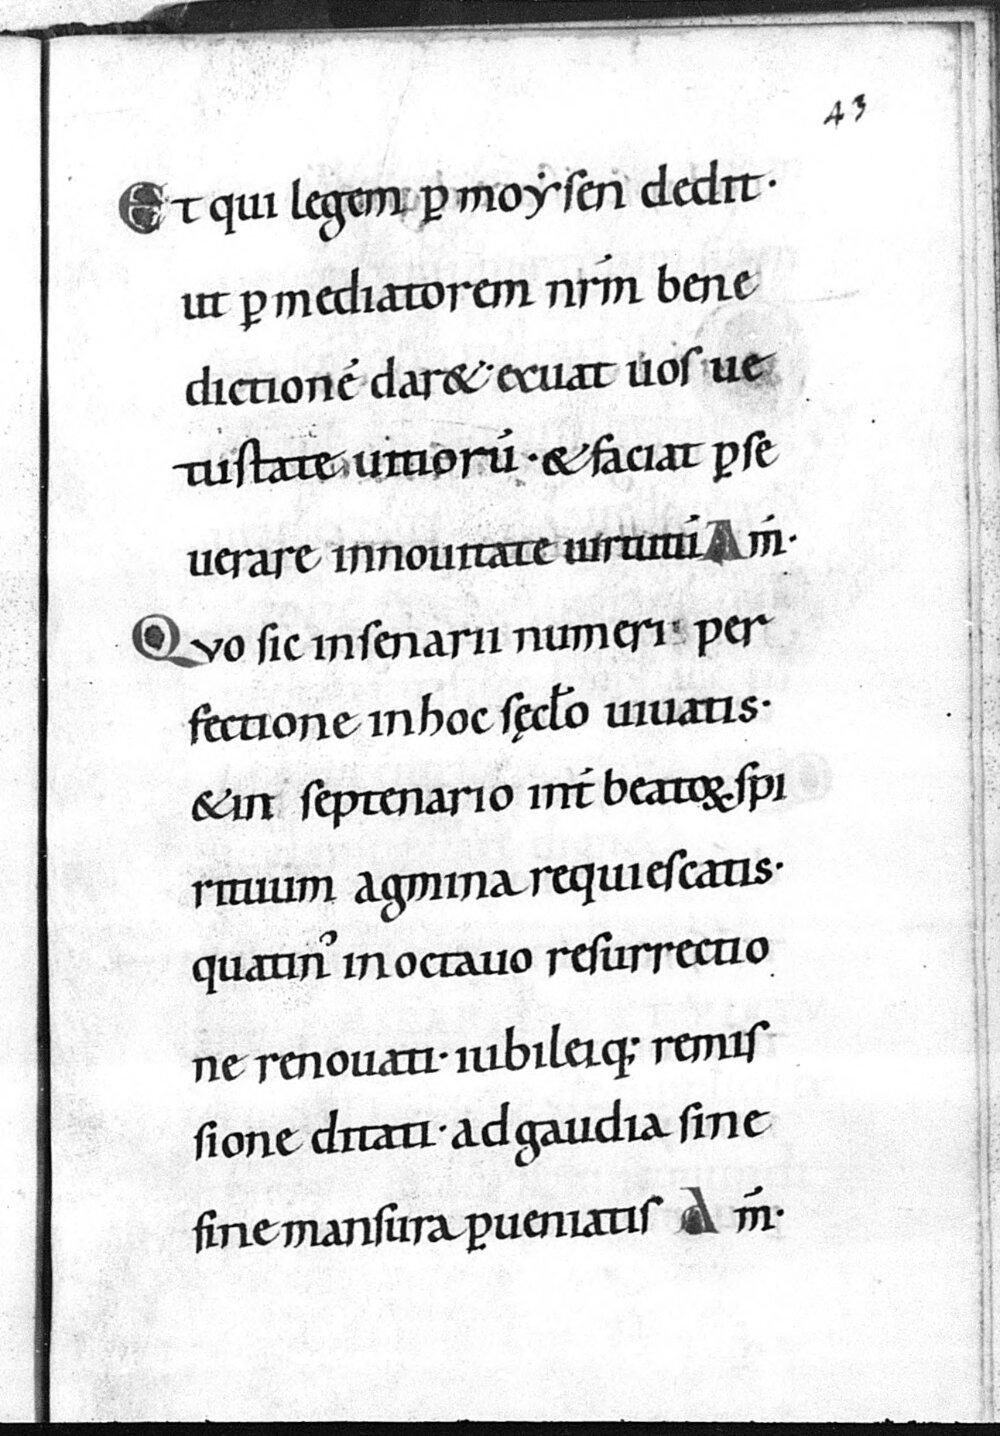 43
Et qui legem ꝑ moẏsen dedit·
ut ꝑ mediatorem nr̄m bene
dictionē dar&· exuat uos ue
tustate uitiorū· & faciat ꝑse
uerare innouitate uirtutū Am̄·
Qvo sic insenarii numeri per
fectione inhoc sęcło uiuatis·
&in septenario int̄ beatoꝝ spi
rituum agmina requiescatis·
quatinꝰ in octauo resurrectio
ne renouati· iubileiq; remis
sione ditati· ad gaudia sine
fine mansura ꝑueniatis Am̄·